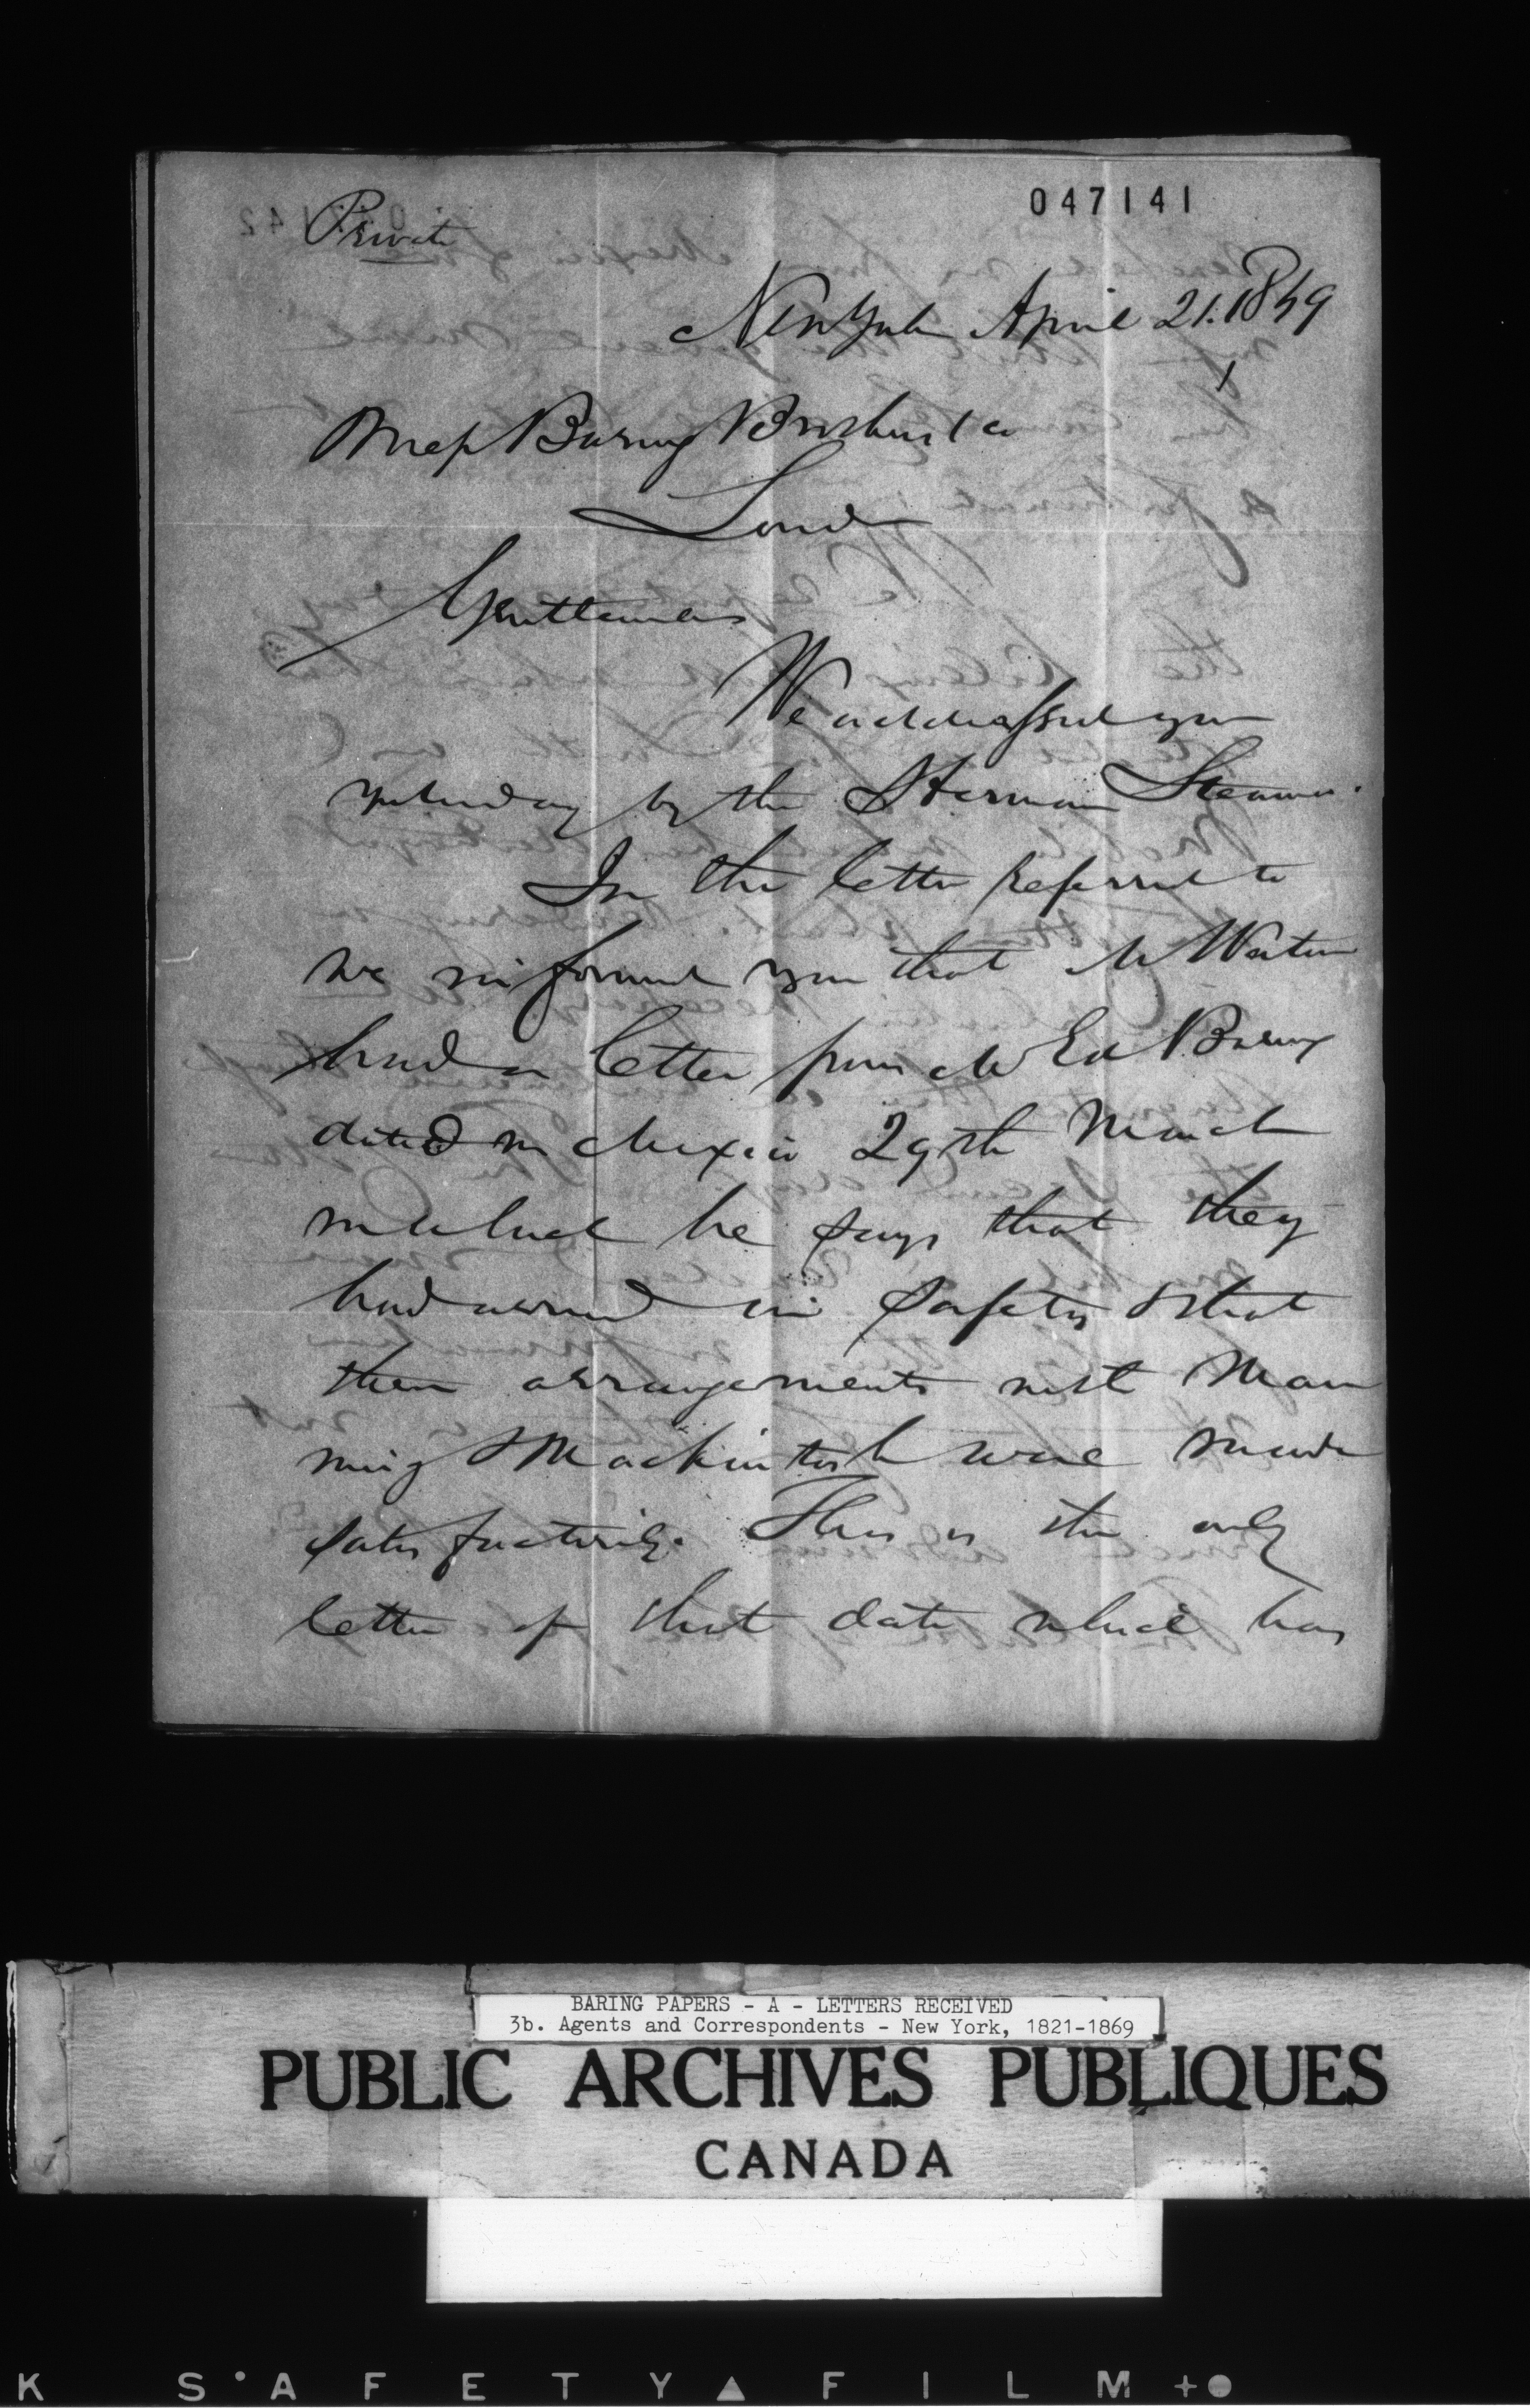 047141
Private
New York April 21. 1849
Mess Baring Brothers & Co
London
Gentlemen
We addressed you
yesterday by the Herman Steamer.
In the letter referred to
we informed you that Mr
had a letter from Mr Ed Baring
dated in Mexico 29th March
in which he says that they
had arrived in safety & that
their arrangements with Man
ning & Mackintosh were made
satisfactorily. This is the only
letter of that date which has
BARING PAPERS - A - LETTERS RECEIVED
3b. Agents and Correspondents - New York, 1821-1869
PUBLIC ARCHIVES PUBLIQUES
CANADA
K SAFETY FILM